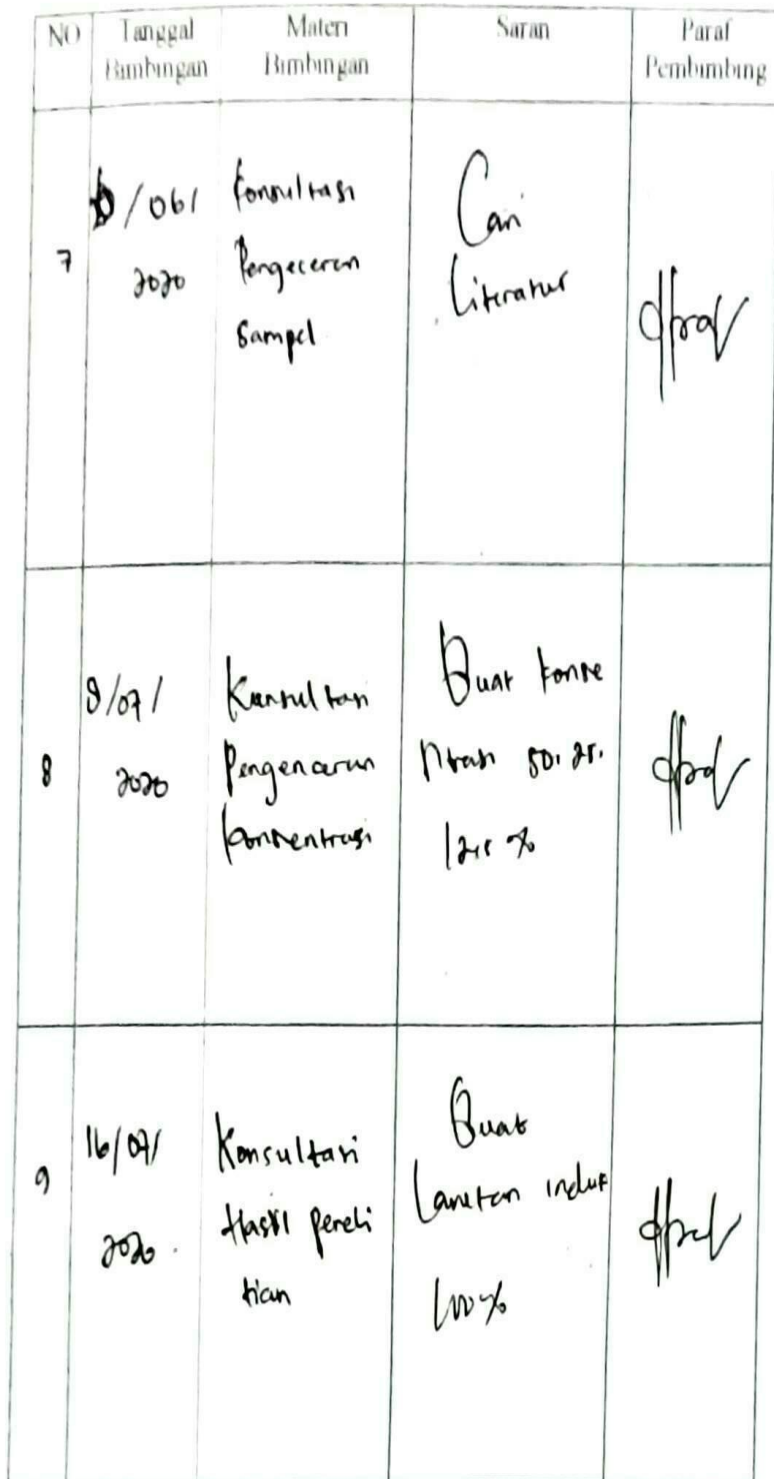 NO Tanggal Bimbingan Materi Bimbingan Saran Paraf Pembimbing
7 /06/ 2020
Konsultasi
Pengeceran
Sampel
Cari
Literatur
8 9/07/ 2020
Konsultasi
Pengenceran
konsentrasi
Buat konse
ntrasi 50, 25,
12,5 %
9 16/07/ 2020
Konsultasi
Hasil peneli
tian
Buat
Larutan induk
100%